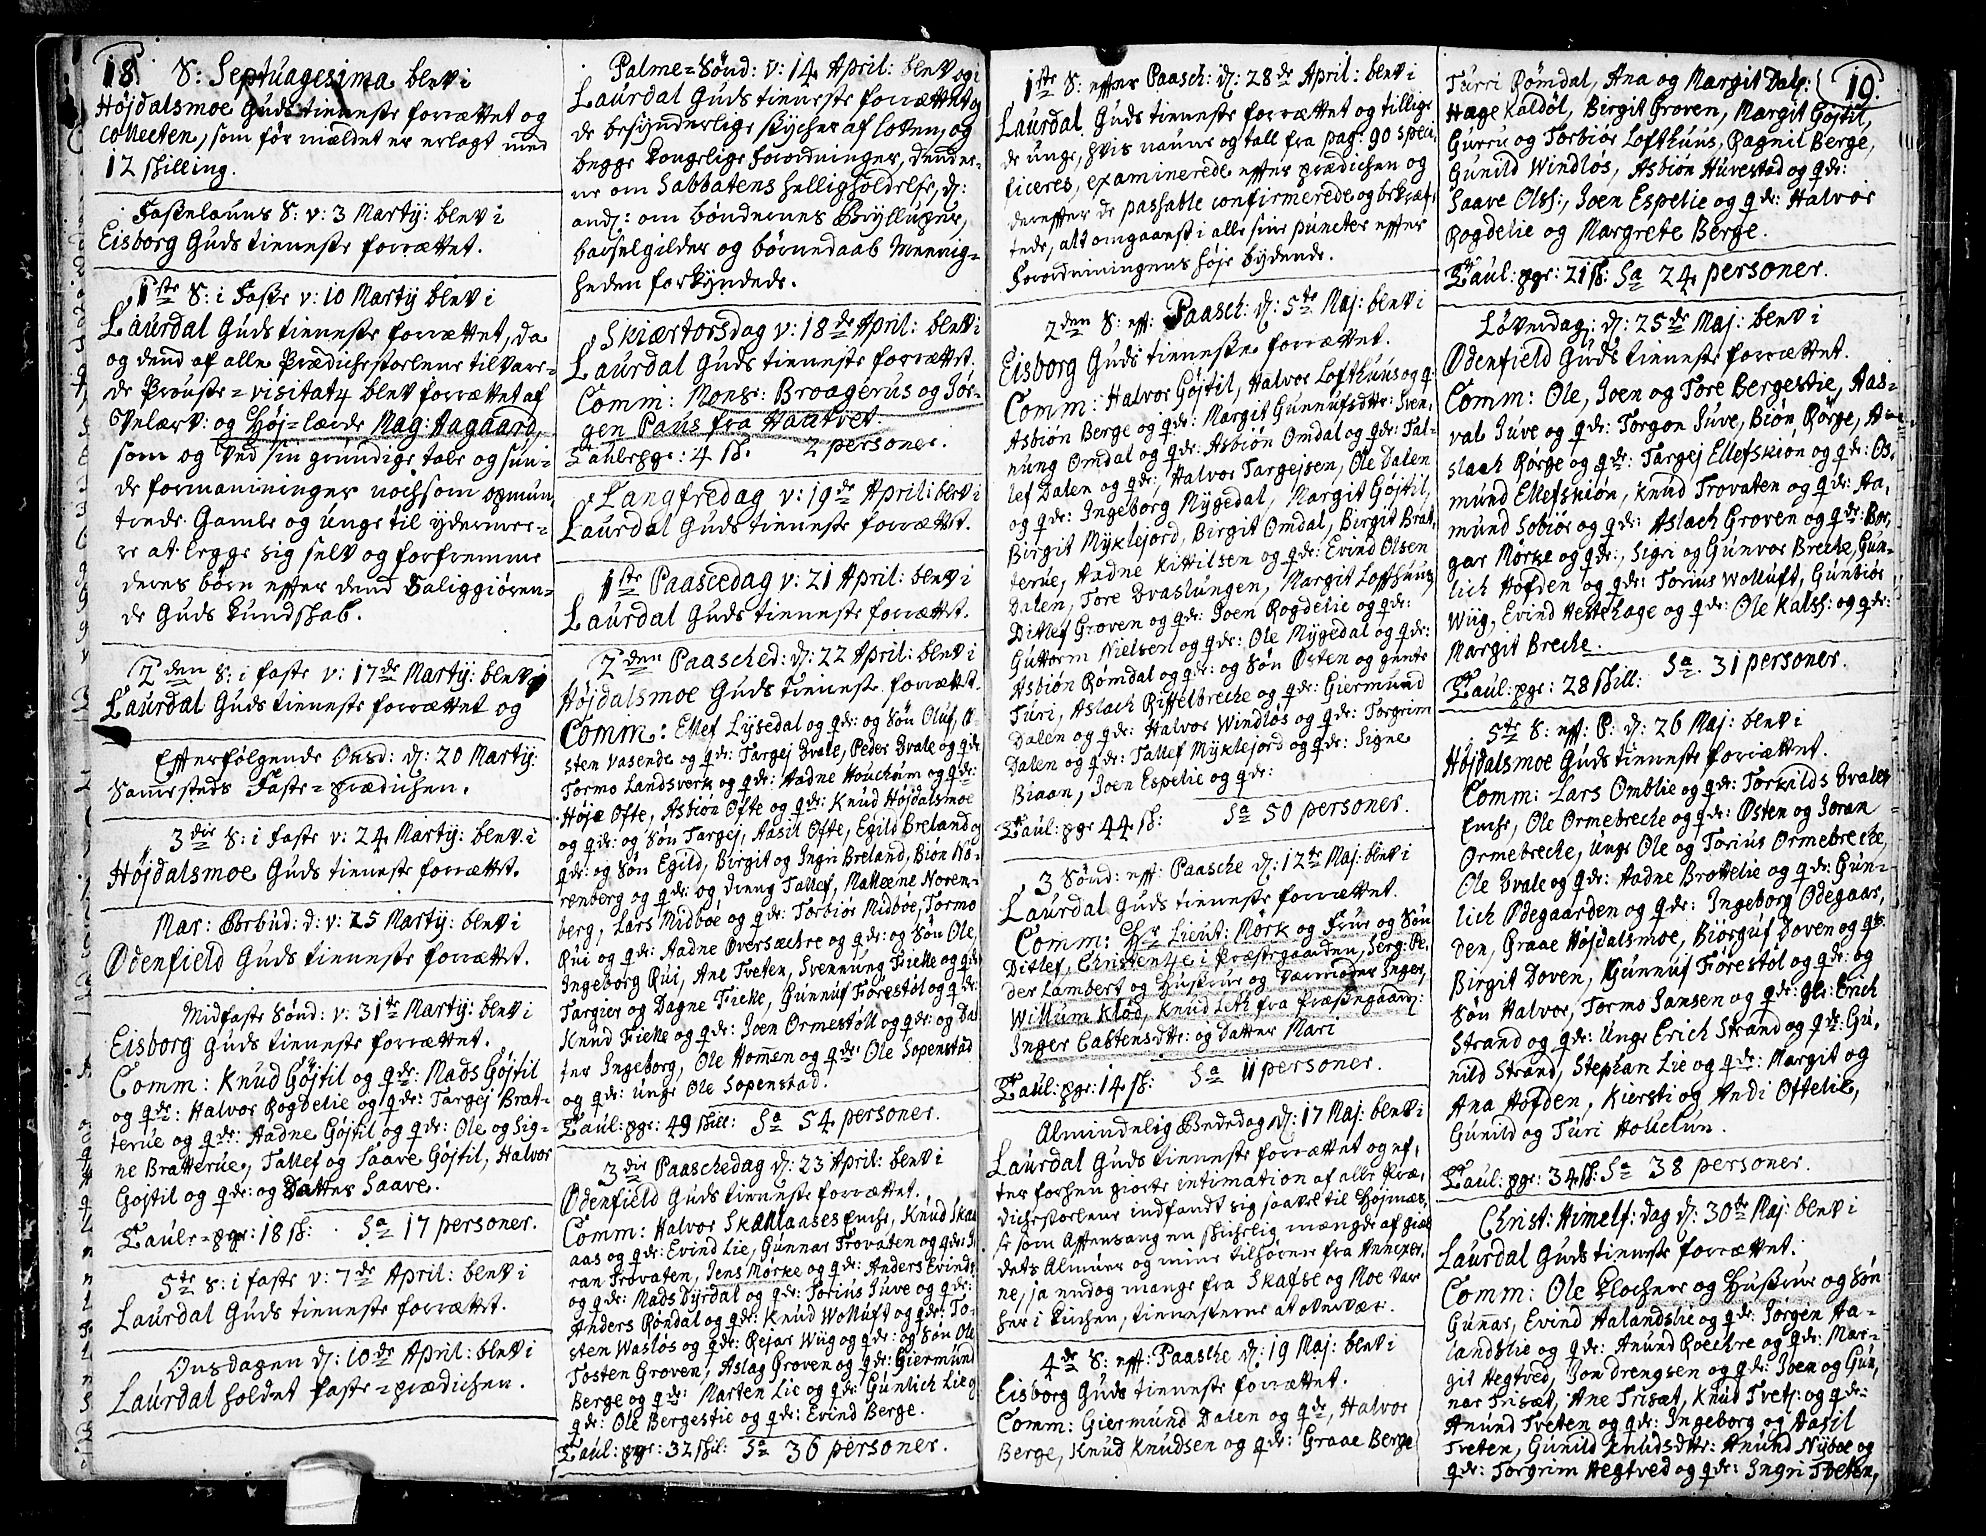 18. S: Septuagesima blev i
Højdalsmoe Guds tieneste forrættet og
collecten, som før mældet er erlagt med
12 skilling.
Fastelauns S: v: 3 Martÿ: blev i
Eisborg Guds tieneste forrættet.
1ste S: i Faste v: 10 Martÿ blev i
Laurdal Guds tieneste forrættet, da
og dend af alle Prædichestolene tilvare-
de Prouste-visitatz blev forrættet af
Velærv: og Høj-lærde Mag: Aagaard,
som og ved sin grundige tale og sun-
de formaninger nochsom opmun-
trede Gamle og Unge til ydermee-
re at legge sig selv og forfremme
deres børn efter dend Saliggiøren-
de Guds kundskab.
2den S: i faste v: 17de Martÿ: blev i
Laurdal Guds tieneste forrættet og
Efterfølgende Onsd: d: 20 Martÿ:
Sammesteds Faste-prædichen.
3die S: i faste v: 24 Martÿ: blev i
Højdalsmoe Guds tieneste forrættet.
Mar: Borbud: d: v: 25 Martÿ: blev i
Ødenfield Guds tieneste forrættet.
Midfaste Sønd: v: 31te Martÿ: blev i
Eisborg Guds tieneste forrættet.
Comm: Knud Gøjtil og qde: Mads Gøjtil
og qde: Halvor Rogdelie og qde: Targej Brat-
terue og qde: Aadne Gøjtil og qde: Ole og Sig-
ne Bratterue, Tallef og Saave Gøjtil, Halvor
Gøjtil og qde: og Datter Saave.
Taule-pge: 18 s: Sa 17 personer.
5te S: i faste v: 7de April: blev i
Laurdal Guds tieneste forrættet.
Onsdagen d: 10de April: blev i
Laurdal holdet faste-prædichen.
Palme-Sønd: v: 14 April: blev og i
Laurdal Guds tieneste forrættet og
de besynderlige stycher af loven, og
begge kongelige forordninger, dend ee-
ne om Sabbatens helligholdelse, d:
and: om bøndernes Bryllupper,
barselgilder og børnedaab Menig-
heden forkyndede.
Skiærtorsdag v: 18de April: blev i
Laurdal Guds tieneste forrættet.
Comm: Mons: Broagerus og Jør-
gen Paus fra Haatvet.
Taulepge: 4 s. 2 personer.
Langfredag v: 19de April: blev i
Laurdal Guds tieneste forrættet.
1ste Paascedag v: 21 April: blev i
Laurdal Guds tieneste forrættet.
2den Paasched: d: 22 April: blev i
Højdalsmoe Guds tieneste forrættet.
Comm: Ellef Lysedal og qde: og Søn Oluf, Ø-
sten Vasende og qde: Targej Qvale, Peder Qvale og qde
Tormo Landsverk og qde: Aadne Houchum og qde:
Højæ Ofte, Asbiøn Ofte og qde: Knud Højdalsmoe
og qde: og Søn Targej, Aasil Ofte, Egild Breland og
qde: og Søn Egild, Birgit og Ingri Breland, Biøn No-
renberg og qde: og dreng Tallef, Matteene Noren-
berg, Lars Midboe og qde: Torbiør Midboe, Tormo
Rui og qde: Aadne Oversæchre og qde: og Søn Ole,
Ingeborg Rui, Ane Tveten, Svennung Ficke og qde
Targier og Dagne Ficke, Gunnuf Førestøl og qde:
Knud Ficke og qde: Joen Ormestøll og qde: og Dat
ter Ingeborg, Ole Hommen og qde: Ole Sopenstad
og qde: Unge Ole Sopenstad.
Taul: pge: 49 skill: Sa 54 personer.
3die Paaschedag d: 23 April: blev i
Ødenfield Guds tieneste forrættet.
Comm: Halvor Skallaases enche, Knud Skal
aas og qde: Evind Lie, Gunnar Trovaten og qde: Jo
ran Trovaten, Jens Mørke og qde: Anders Evinds
og qde: Mads Dyrdal og qde: Torius Juve og qde:
Anders Røndal og qde: Knud Wolluft og qde: To-
sten Wasløs og qde: Rejar Wiig og qde: og Søn Ole
Tosten Groven, Aslag Groven og qde: Giermund
Berge og qde: Marten Lie og qde: Gunlich Lie og
qde: Ole Bergestie og qde: Evind Berge.
Taul: pge: 32 skil: Sa 36 personer.
1ste S: efter Paasch: d: 28de April: blev i
Laurdal Guds tieneste forrættet og tillige
de unge, hvis naune og tall fra pag: 90 speci-
ficeres, examinerede efter prædichen og
derefter de passable confirmerede og bekræf-
tede, alt omgaaest i alle sine puncter efter
forordningens høje bydende.
2den S: eff: Paasch: d: 5te Maj: blev i
Eisborg Guds tieneste forrættet.
Comm: Halvor Gøjtil, Halvor Lofthuus og q:
Asbiøn Berge og qde: Margit Gunnufsdtter: Sven-
nung Omdal og qde: Asbiøn Omdal og qde: Tal-
lef Dalen og qde: Halvor Targejsen, Ole Dalen
og qde: Ingeborg Mygedal, Margit Gøjtil,
Birgit Myklejord, Birgit Omdal, Birgit Brat-
terue, Aadne Kittilsen og qde: Evind Olsen
Dalen, Tore Qvaslungen, Margit Lofthuus
Ditlef Groven og qde: Joen Rogdelie og qde:
Guttorm Nielsen og qde: Ole Mygedal og qde:
Asbiøn Rømdal og qde: og Søn Østen og gente
Turi, Aslach Riffelbreche og qde: Giermund
Dalen og qde: Halvor Windløs og qde: Torgrim
Dalen og qde: Tallef Myklejord og qde: Signe
Biaan, Joen Espelie og qde:
Taul: pge 44 s: Sa 50 personer.
3 Sønd: eff: Paasche d: 12te Maj: blev i
Laurdal Guds tieneste forrættet.
Comm: Hr Lieut: Mørk og Frue og Søn
Ditlef, Christentze i Præstegaarden, Serg: Pe-
der Lambert og Hustrue og Værmoder Inger,
Willum Klod, Knud Lith fra Præstegaard:
Inger Castensdtter: og Datter Mari
Taul: pge: 14 s: Sa 11 personer.
Almindelig Bededag d: 17 Maj: blev i
Laurdal Guds tieneste forrættet og ef-
ter forhen giorte intimation af alle Præ-
dichestolene indfandt sig saavel til Højmes-
se som Aftensang en skichelig mængde af giæl
dets Almue og mine tilhørere fra Annexer-
ne, ja endog mange fra Skafse og Moe var
her i kirchen, tienesterne at overvær.
4de S: eff: Paasche d: 19 Maj: blev i
Eisborg Guds tieneste forrættet.
Comm: Giermund Dalen og qde, Halvor
Berge, Knud Knudsen og qde: Graae Berge
19.
Turri Rømdal, Ana og Margit Dal:
Hage Kaldol, Birgit Groven, Margit Gøjtil,
Gurru og Torbiør Lofthuus, Ragnil Berge,
Gunild Windløs, Asbiøn Huvestad og qde:
Saave Olss:, Joen Espelie og qde: Halvor
Rogdelie og Margrete Berge.
Taul: pge: 21 s: Sa 24 personer.
Løverdag: d: 25de Maj: blev i
Ødenfield Guds tieneste forrættet.
Comm: Ole, Joen og Tore Bergestie, Aas-
val Juve og qde: Torgon Juve, Biøn Rørge, A
slach Rørge og qde: Targej Ellefskiøn og qde: Os-
mund Ellefskiøn, Knud Trovaten og qde: Aa-
mund Sobiør og qde: Aslach Groven og qde: Bor-
gar Mørke og qde: Sigri og Gunvor Breche, Gun-
lich Høfden og qde: Torius Wolluft, Gunbiør
Wiig, Evind Hestehage og qde: Ole Kalss: og qde:
Margit Breche.
Taul: pge: 28 skill: Sa 31 personer.
5te S: eff: P: d: 26 Maj: blev i
Højdalsmoe Guds tieneste forrættet.
Comm: Lars Omblie og qde: Torkilds Qvales
enche, Ole Ormebreche og qde: Østen og Joran
Ormebreche, Unge Ole og Torius Ormebreche,
Ole Qvale og qde: Aadne Brottelie og qde: Gun-
lich Ødegaarden og qde: Ingeborg Ødegaar-
den, Graae Højdalsmoe, Biorguf Doven og qde:
Birgit Doven, Gunnuf Førestøl og qde: og
Søn Halvor, Tormo Jansen og qde: gl: Erich
Strand og qde: Unge Erich Strand og qde: Gu-
nild Strand, Stephan Lie og qde: Margit og
Ana Høfden, Kiersti og Andi Oftelie,
Gunild og Turi Houchun.
Taul: pge: 34 s: Sa 38 personer.
Christ: Himelf: dag d: 30te Maj: blev i
Laurdal Guds tieneste forrættet.
Comm: Ole Klochner og Hustrue og Søn
Gunar, Evind Aalandslie og qde: Jørgen Aa-
landslie og qde: Anund Roechre og qde: Mar-
git Hegtved, Jon drengsen og qde: Joen og Gun-
nar Trisæt, Ane Trisæt, Knud Tvet: og qde:
Anund Tveten og qde: Ingeborg og Aasil
Tveten, Gunild Knudsdtter: Anund Nyboe og
qde: Torgrim Hegtved og qde: Ingri Tveten,